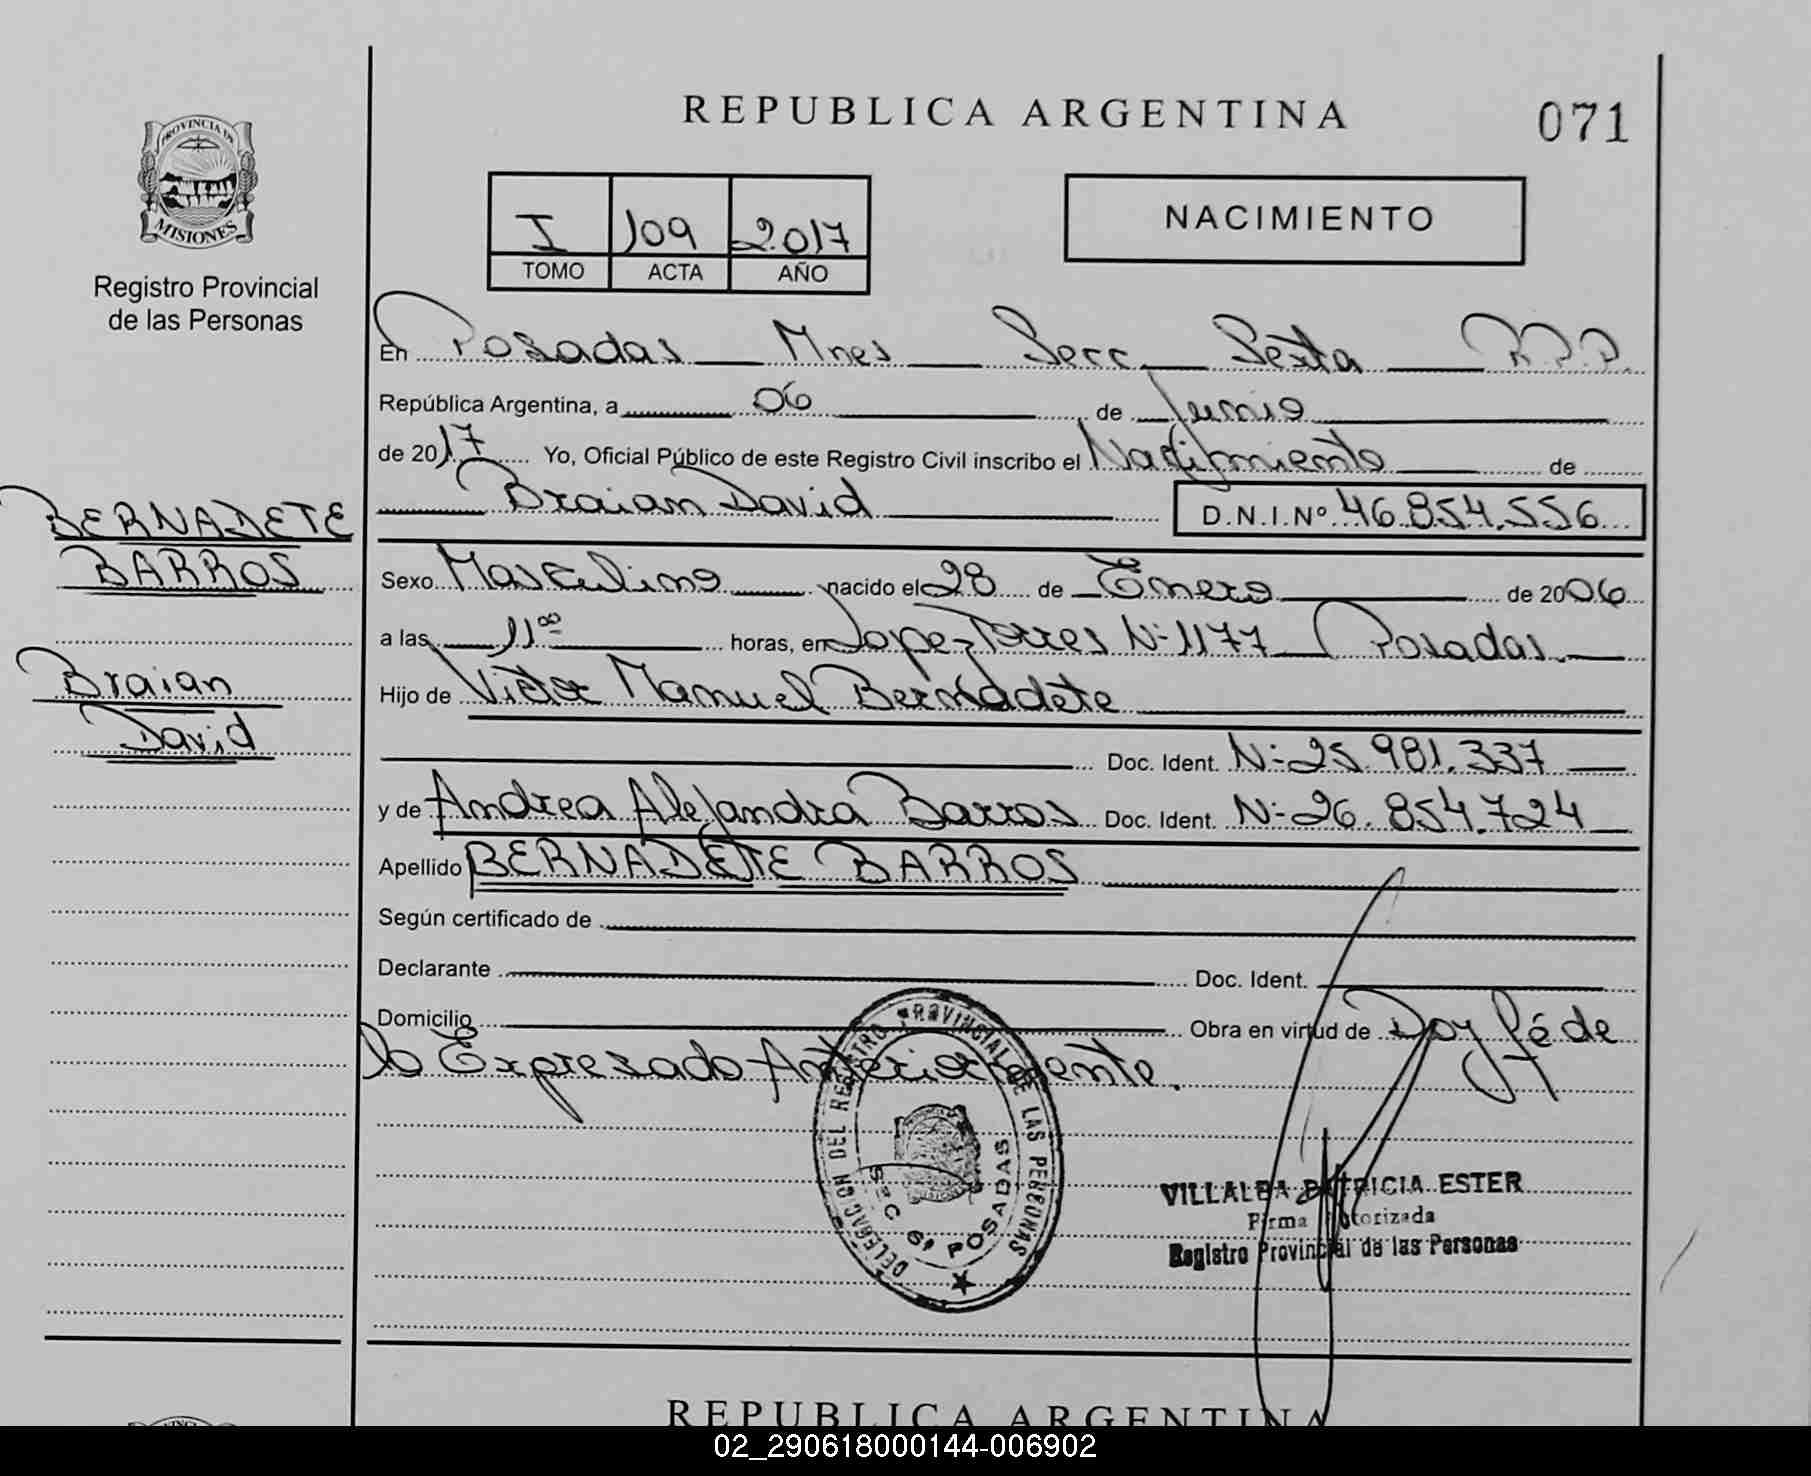 REPUBLICA ARGENTINA
071
PROVINCIA DE
MISIONES
Registro Provincial
de las Personas
I 109 2017
TOMO ACTA AÑO
NACIMIENTO
En Posadas Mnes Secc. Sexta R.P.P.
República Argentina, a 06 de Junio
de 2017 Yo, Oficial Público de este Registro Civil inscribo el Nacimiento de
Braian David D.N.I.Nº 46.854.556
BERNADETE
BARROS
Braian
David
Sexo Masculino nacido el 28 de Enero de 2006
a las 11⁰⁰ horas, en Lopez Torres Nº 1177 Posadas.
Hijo de Victor Manuel Bernadete
Doc. Ident. Nº 25.981.337
y de Andrea Alejandra Barros Doc. Ident. Nº 26.854.724
Apellido BERNADETE BARROS
Según certificado de
Declarante Doc. Ident.
Domicilio Obra en virtud de Doy fé de
lo Expresado Anteriormente.
DELEGACION DEL REGISTRO PROVINCIAL DE LAS PERSONAS
SEC 6ª POSADAS
VILLALBA PATRICIA ESTER
Firma Autorizada
Registro Provincial de las Personas
REPUBLICA ARGENTINA
02_290618000144-006902